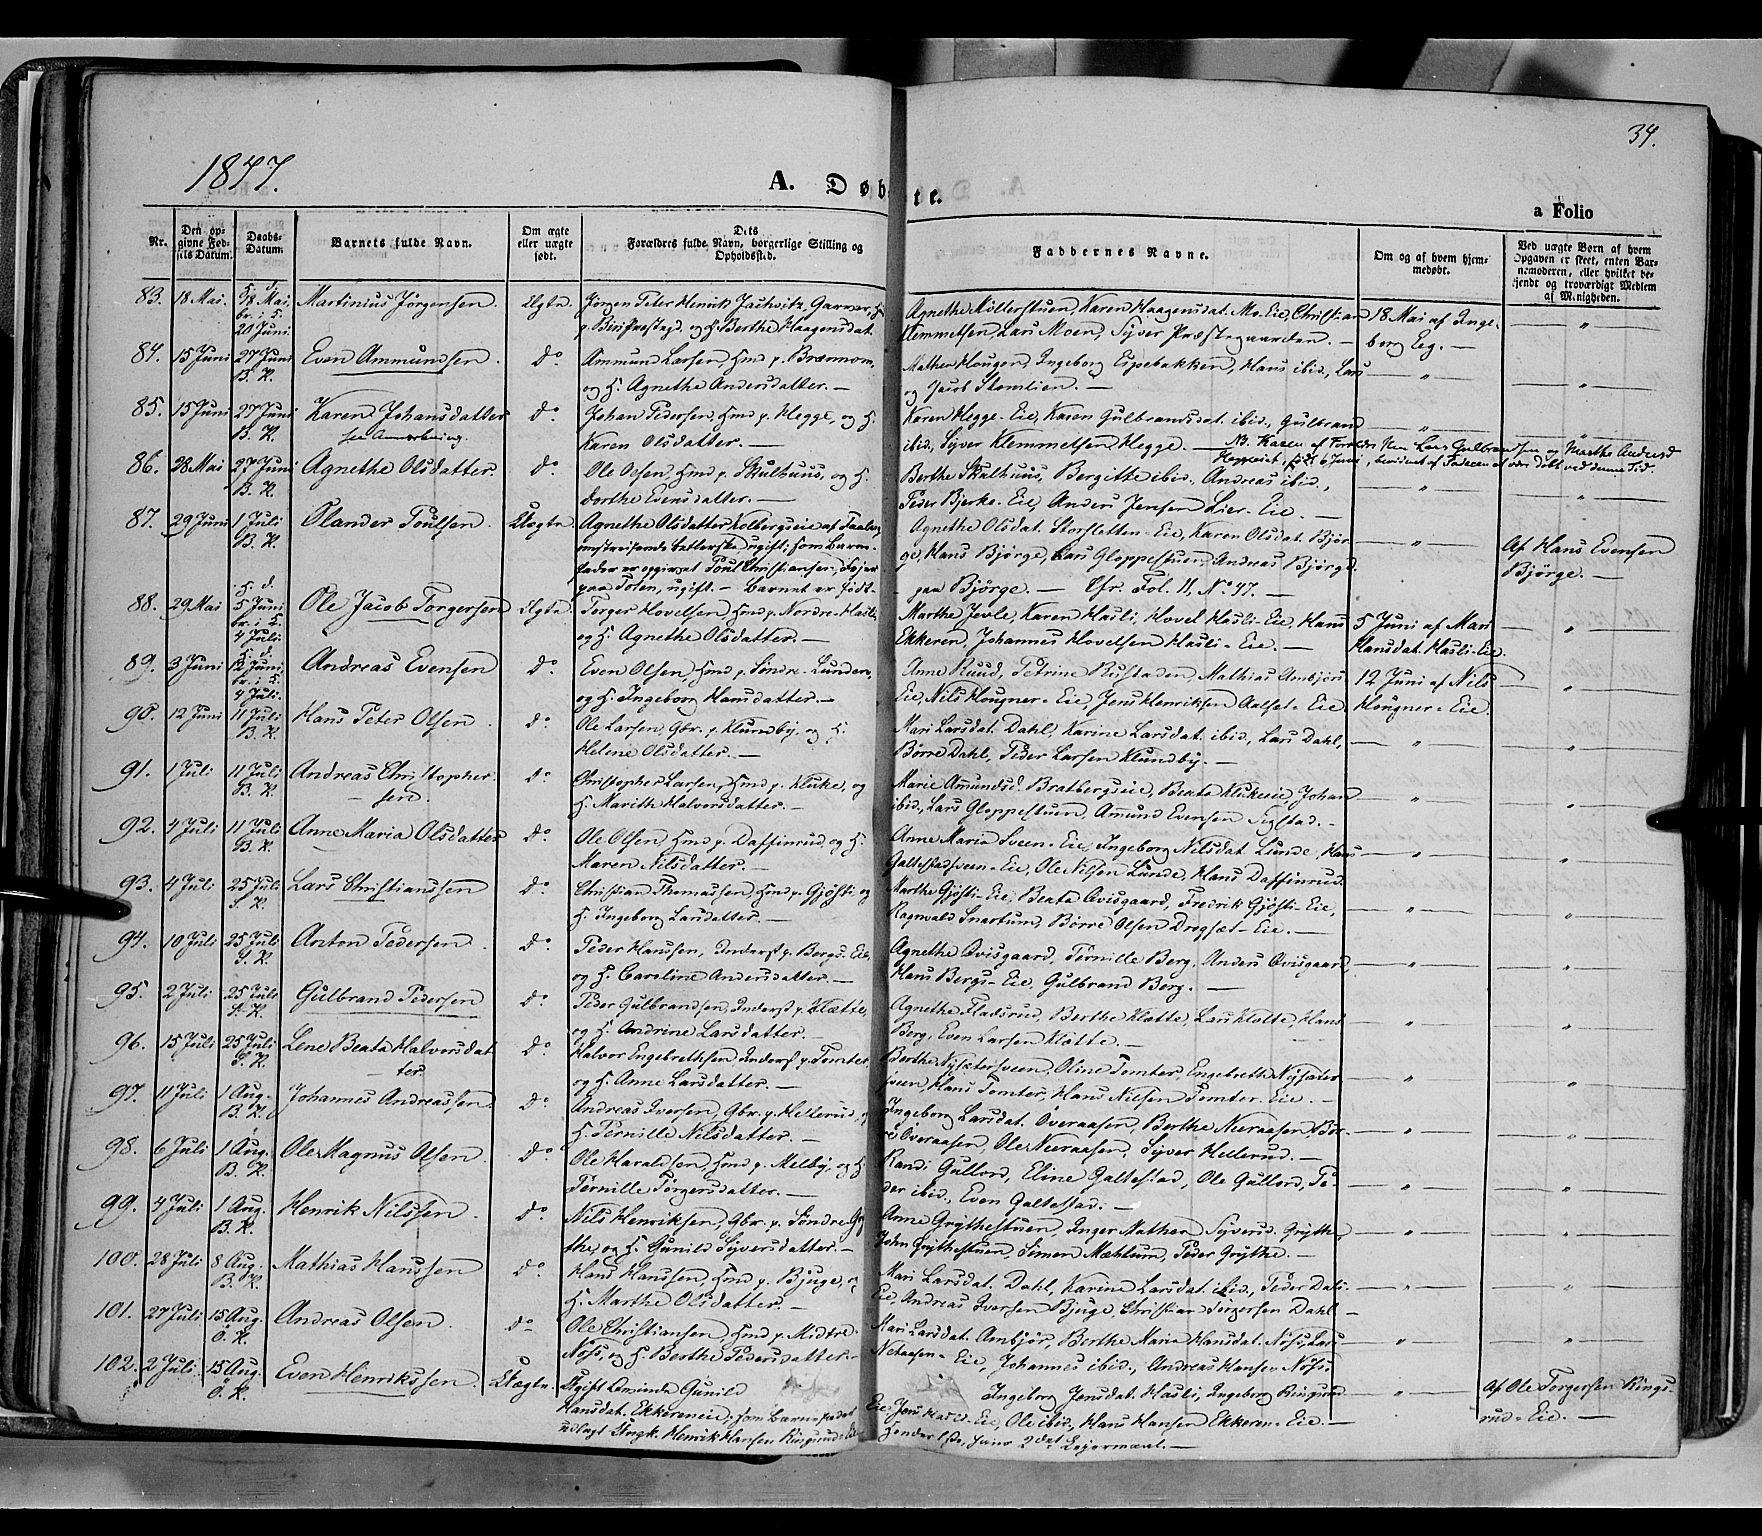 34.
1847.
A. Døbte.
a Folio
Nr.
Den opgivne Fødsels Datum.
Daabs-Datum.
Barnets fulde Navn.
Om ægte eller uægte født.
Dets Forældres fulde Navn, borgerlige Stilling og Opholdssted.
Faddernes Navne.
Om og af hvem hjemmedøbt.
Ved uægte Børn af hvem Opgaven er skeet, enten Barnemoderen, eller hvilket bekjendt og troværdigt Medlem af Menigheden.
83. 18 Mai. H. d. 18 Mai, br. i K. 20 Juni. Martinius Jörgensen. Ægte. Jörgen Peter Henrik Garver, p. Biri Præstegd. og H. Berthe Haagensdat. Agnethe Möllerstuen, Karen Haagensdat. Mo-Eie, Christian Klemmetsen, Lars Moen, Syver Præstegaarden. — 18 Mai af Ingeborg Eeg. — — " —
84. 15 Juni 27 Juni B. K. Even Ammundsen. Do. Ammund Larsen, Hmd p. Brænnom, og H. Agnethe Andersdatter. — Mathea Hougen, Ingeborg Espebakken, Hans ibid., Lars og Jacob Stomlien. — — " — — " —
85. 15 Juni 27 Juni B. K. Karen Johansdatter see Anmærkning. Do. Johan Pedersen, Hmd p. Hegge, og H. Karen Olsdatter. — Karen Hegge-Eie, Karen Gulbrandsdat. ibid., Gulbrand ibid., Syver Klemmetsen Hegge. — — " — — " —
NB. Karen af Forældre Hm. Lars Gulbrandsen og Marthe Andersd. født 6 Juni, bevidnet af Faderen at være døbt ved denne Tid.
86. 28 Mai 27 Juni B. K. Agnethe Olsdatter. Do. Ole Olsen, Hmd p. Skulhuus, og H. Dorthe Evensdatter. — Berthe Skulhuus, Bergitte ibid., Andreas ibid., Peder Bjerke-Eie, Anders Jensen Lier-Eie. — — " — — " —
87. 29 Juni 1 Juli B. K. Olander Poulsen. Uægte. Agnethe Olsdatter Kolbergseie af omstreifende Betlerske ugift; som Barnefader er opgivet Poul Christiansen, paa Toten, ugift. — Barnet er født paa Björge. — Cfr. Fol. 11, No 47. — Agnethe Olsdat. Storsletten-Eie, Karen Olsdat. Björge, Hans Björge, Lars Gloppestuen, Andreas Björge. — " — Af Hans Evensen Björge. —
88. 29 Mai H. d. 5 Juni, br. i K. 4 Juli. Ole Jacob Torgersen Ægte. Torger Hovelsen, Hmd p. Nordre-Hasli, og H. Agnethe Olsdatter. — Marthe Jevle, Karen Hasli, Hovel Hasli-Eie, Hans Ekkeren, Johannes Hovelsen Hasli-Eie. — 5 Juni af Mari Hansdat. Hasli-Eie. — " —
89. 3 Juni H. d. 12 Juni, br. i K. 4 Juli. Andreas Evensen Do. Even Olsen, Hmd p. Söndre-Lunden, og H. Ingeborg Hansdatter. — Anne Ruud, Petrine Rustaden, Mathias Ambjör-Eie, Nils Hougner-Eie, Jens Henriksen Aalset-Eie. 12 Juni af Nils Hougner-Eie. — " —
90. 12 Juni 11 Juli B. K. Hans Peter Olsen. Do. Ole Larsen, Gbr. p. Klundby, og H. Helene Olsdatter. — Mari Larsdat. Dahl, Karine Larsdat. ibid., Lars Dahl, Börre Dahl, Peder Larsen Klundby. — — " — — " —
91. 1 Juli 11 Juli B. K. Andreas Christophersen. Do. Christopher Larsen, Hmd p. Kluke, og H. Marithe Halvorsdatter. — Marie Amundsd. Bratbergseie, Beata Klukeeie, Johan ibid., Lars Gloppestuen, Amund Evensen Sigstad. — — " — — " —
92. 4 Juli 11 Juli B. K. Anne Maria Olsdatter Do. Ole Olsen, Hmd p. Daffinrud, og H. Maren Nilsdatter. — Anne Maria Sveen-Eie, Ingeborg Nilsdat. Lunde, Hans Galtestadsveen-Eie, Ole Nilsen Lunde, Hans Daffinrud. — " — — " —
93. 4 Juli 25 Juli S. K. Lars Christianssen Do. Christian Thomassen, Hmd p. Gjösti og H. Ingeborg Larsdatter. — Marthe Gjösti-Eie, Beata Qvisgaard, Fredrik Gjösti-Eie, Ragnvald Snartum, Börre Olsen Drogset-Eie. — — " — — " —
94. 10 Juli 25 Juli S. K. Anton Pedersen. Do. Peder Hanssen, Inderst p. Bergs-Eie, og H. Caroline Andersdatter. — Agnethe Qvisgaard, Pernille Berg, Anders Qvisgaard, Hans Bergs-Eie, Gulbrand Berg. — — " — — " —
95. 2 Juli 25 Juli S. K. Gulbrand Pedersen Do. Peder Gulbrandsen, Inderst p. Klætte, og H. Andrine Larsdatter. — Agnethe Fladsrud, Berthe Klætte, Lars Klætte, Hans Berg, Even Larsen Klætte. — — " — — " —
96. 15 Juli 25 Juli S. K. Lene Beata Halvorsdatter Do. Halvor Engebrethsen Inderst p. Tomter, og H. Anne Larsdatter. — Berthe Nysætersveen, Oline Tomter, Engebreth Nysætersveen, Hans Tomter, Hans Nilsen Tomter-Eie. — — " — — " —
97. 11 Juli 1 Aug. B. K. Johannes Andreassen. Do. Andreas Iversen, Gbr. p. Hellerud, og H. Pernille Nilsdatter. — Ingeborg Larsdat. Överaasen, Berthe Neeraasen, Börre Överaasen, Ole Neeraasen, Syver Hellerud. — — " — — " —
98. 6 Juli 1 Aug. B. K. Ole Magnus Olsen. Do. Ole Haraldsen, Hmd p. Melby, og H. Pernille Torgersdatter. — Randi Gullord, Eline Galtestad, Ole Gullord, Peder ibid., Even Galtestad. — — " — — " —
99. 4 Juli 1 Aug. B. K. Henrik Nilssen. Do. Nils Henriksen, Gbr. p. Söndre Grythe, og H. Gunild Syversdatter. — Anne Grythestuen, Inger Mathea Syversd. Grythe, John Grythestuen, Simen Mæhlum, Peder Grythe. — — " — — " —
100. 28 Juli 8 Aug. B. K. Mathias Hanssen Do. Hans Hanssen, Hmd p. Bjuge, og H. Marthe Olsdatter. — Mari Larsdat. Dahl, Karine Larsdat. ibid., Peder Dals-Eie, Andreas Iversen Bjuge, Christian Torgersen Dahl — — " — — " —
101. 27 Juli 15 Aug. O. K. Andreas Olsen. Do. Ole Christiansen, Hmd p. Midtre-Nöss, og H. Berthe Pedersdatter. — Mari Larsdat. Ambjör, Berthe Maria Hansdat. Nöss, Lars -Eie, Johannes ibid., Andreas Hansen Nöss. — " — — " —
102. 2 Juli 15 Aug. O. K. Even Henrikssen. Uægte. Ugift Qvinde Gunild Hansdat. Ekkereneie, som Barnefader udlagt Ungk. Henrik Hansen Ringsrud-Eie Ingeborg Jensdat. Hasli, Ingeborg Ringsrud-Eie, Jens -Eie, Ole ibid., Hans Hansen Ekkeren-Eie. — hendes 1ste, hans 2det Leiermaal. — — " — Af Ole Torgersen Ringsrud-Eie. —